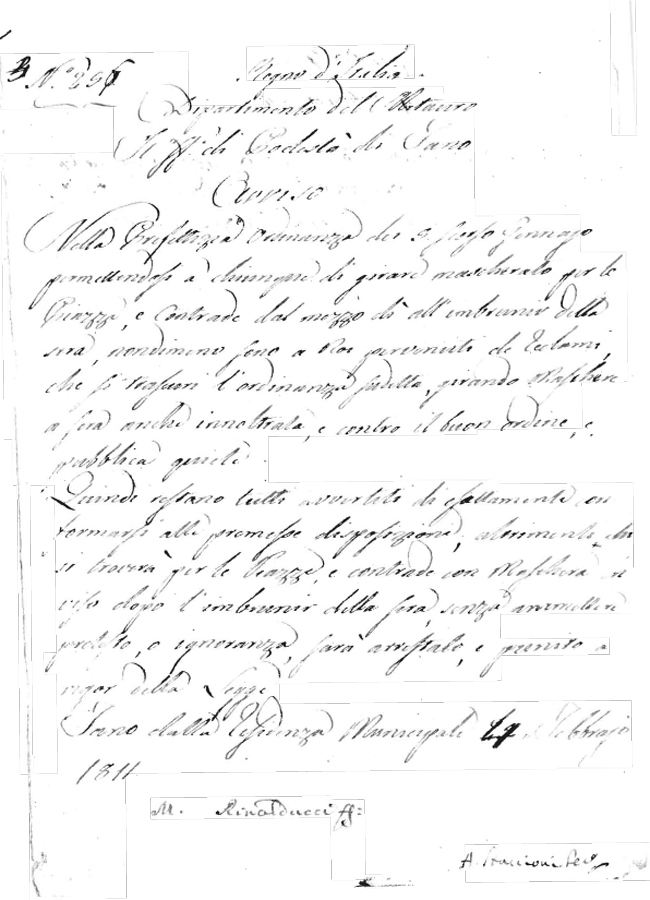 N.º 296
Regno d'Italia.
Dipartimento del Metauro
Il ff. di Podestà di Fano
Avviso
Nella Prefettizia Ordinanza dei 9 scorso Gennajo
permettendosi a chiunque di girare mascherato per le
Piazze, e Contrade dal mezzo dì all'imbrunir della
sera, nondimeno sono a Noi pervenuti de Reclami,
che si trascuri l'ordinanza sudetta, girando Maschere
a sera anche innoltrata, e contro il buon ordine, e
pubblica quiete.
Quindi restano tutti avvertiti di esattamente con
formarsi alle premesse disposizioni, altrimenti chi
si troverà per le Piazze, e contrade con Maschera in
viso dopo l'imbrunir della sera, senza ammettere
pretesto, o ignoranza, sarà arrestato, e punito a
rigor della Legge
Fano dalla Residenza Municipale Febbrajo
1811
M. Rinalducci ff: